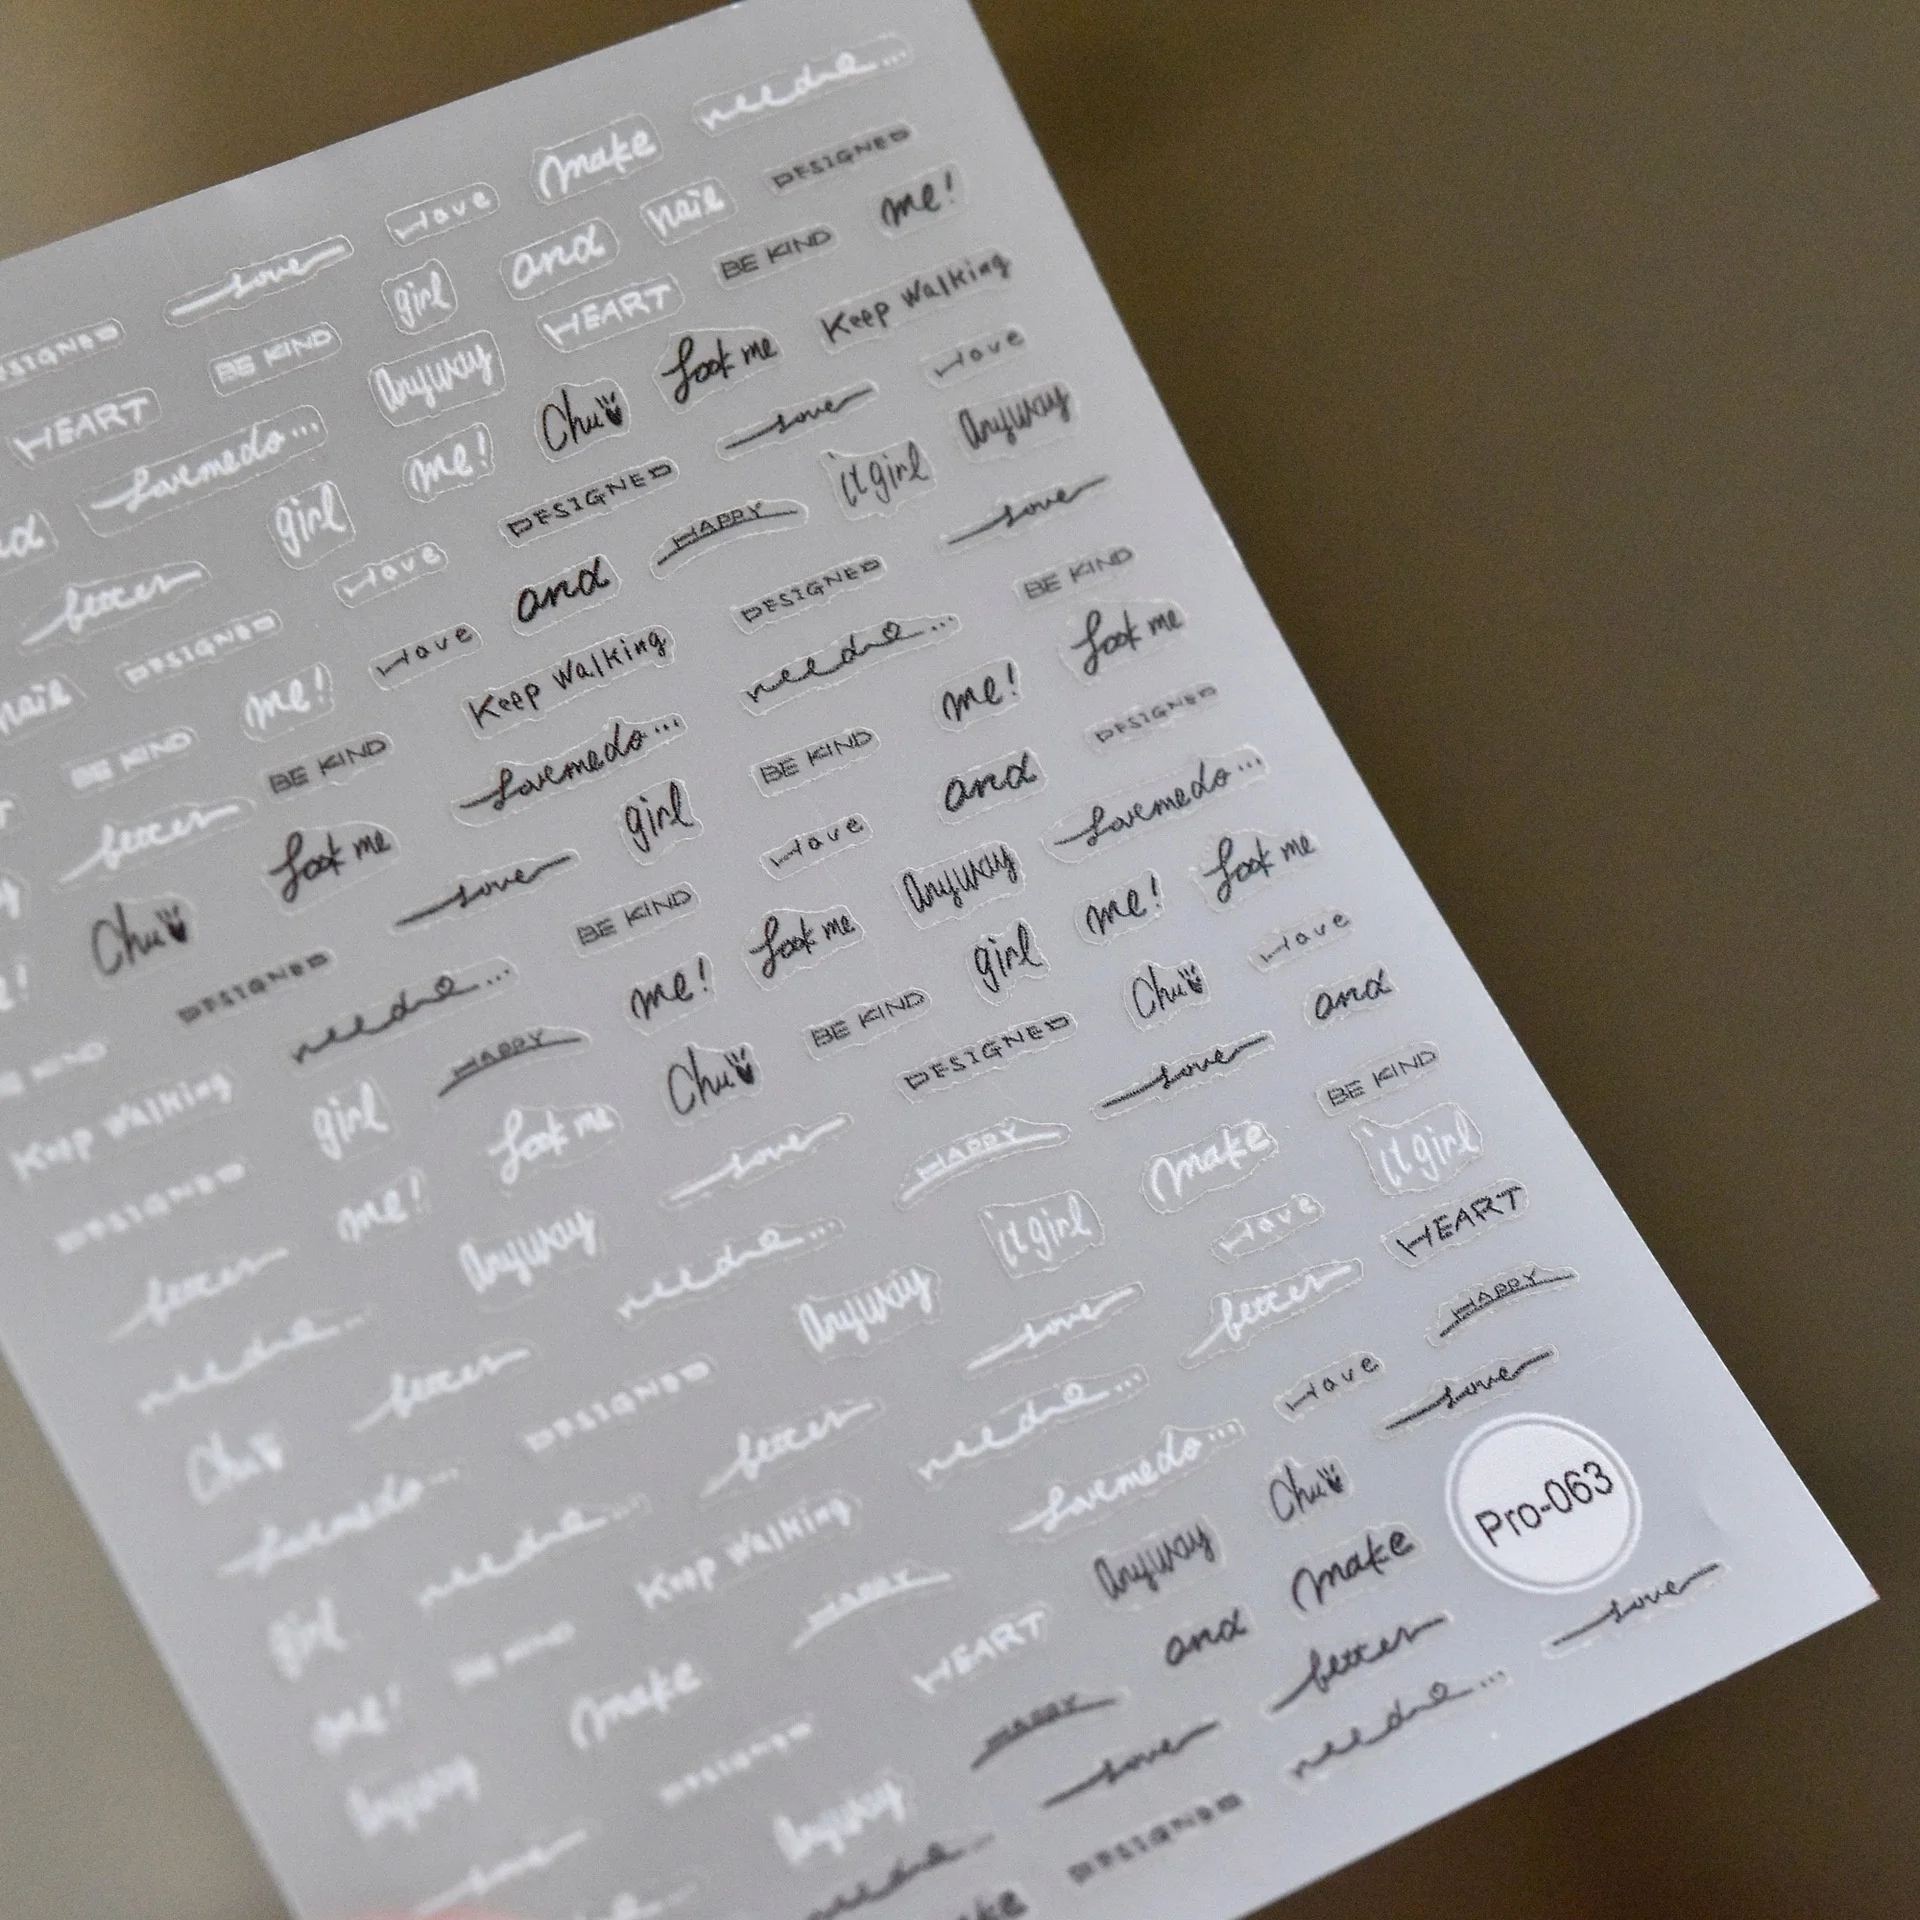 needme...
make
Love
Love
DESIGNED
nail
and
girl
BE KIND
me!
BE KIND
HEART
Anyway
HEART
Keep Walking
Look me
Chu
me!
Lovemedo...
Love
Love
DESIGNED
girl
Anyway
it girl
HAPPY
and
Love
better
Love
DESIGNED
Keep Walking
Love
DESIGNED
nail
BE KIND
needme...
Lovemedo...
BE KIND
me!
BE KIND
Look me
me!
BE KIND
girl
Love
Look me
better
DESIGNED
and
Love
BE KIND
Chu
Lovemedo...
Anyway
Look me
me!
needme...
DESIGNED
Look me
me!
girl
BE KIND
Chu
HAPPY
girl
Keep Walking
Love
Chu
DESIGNED
Love
Look me
me!
DESIGNED
and
Love
HAPPY
Love
Anyway
better
BE KIND
make
it girl
needme...
needme...
it girl
Love
Anyway
better
Chu
HEART
better
Love
DESIGNED
Lovemedo...
HAPPY
Love
needme...
better
needme...
girl
Love
Lovemedo...
Keep Walking
BE KIND
me!
Pro-063
Chu
Anyway
HAPPY
make
Anyway
make
and
HEART
DESIGNED
Love
better
HAPPY
Anyway
Love
needme...
Love
DESIGNED